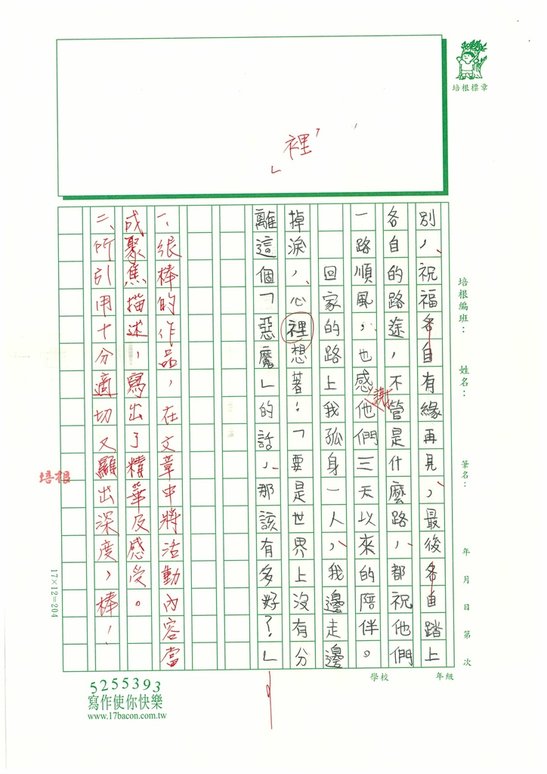 裡
培根標章
培根編班： 姓名： 筆名： 年 月 日 第 次
學校 年級
別，祝福各自有緣再見，最後各自踏上
各自的路途，不管是什麼路，都祝他們
一路順風，也感謝他們三天以來的陪伴。
回家的路上我孤身一人，我邊走邊
掉淚，心裡想著：「要是世界上沒有分
離這個「惡魔」的話，那該有多好？」
一、很棒的作品，在文章中將活動內容當
成聚焦描述，寫出了精華及感受。
二、所引用十分適切又顯出深度，棒！
培根
17×12=204
5255393
寫作使你快樂
www.17bacon.com.tw